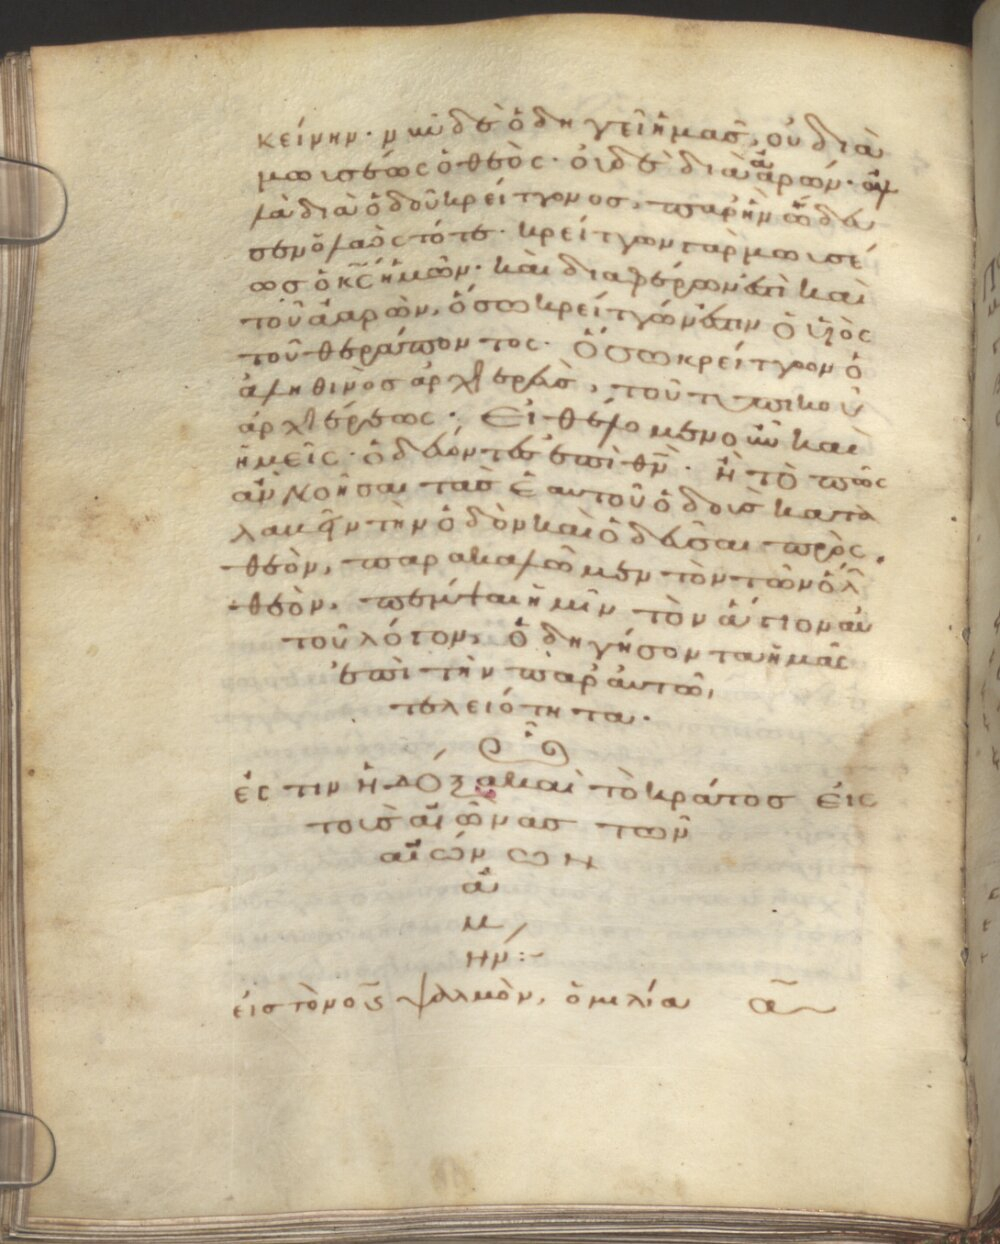 κείνην· νυνὶ δὲ ὁδηγεῖ ἡμᾶς, οὐ διὰ
μωισέως ὁ θεὸς· οὐδὲ διὰ ἀαρών· ἀλ
λὰ διὰ ὁδοῦ κρείττονος, παρ' ἣν ὥδευ
σεν ὁ λαὸς τότε· κρείττων γὰρ μωισέ
ως ὁ κ̅ς̅ ἡμῶν· καὶ διαφέρων ἐστὶ καὶ
τοῦ ἀαρὼν, ὅσω κρείττων ἐστιν ὁ υἱὸς
τοῦ θεράποντος· ὅσω κρείττων ὁ
ἀληθινὸς ἀρχιερεὺς, τοῦ τυπικοῦ
ἀρχιερέως· Εἰ θέλομεν οὖν καὶ
ἡμεῖς· ὁδεύοντες ἐπὶ θ̅ν̅· ἢ τὸ πῶς
ἂν νοῆσαι τὰς ἑαυτοῦ ὁδοὺς κατα
λαβεῖν τὴν ὁδὸν καὶ ὁδεῦσαι πρὸς
θεὸν, παρακαλῶμεν τὸν τῶν ὅλ
θεὸν, πέμψαι ἡμῖν τὸν ἅγιον αυ
τοῦ λόγον, ὁδηγήσοντα ἡμᾶς
ἐπὶ τὴν παρ' αυτῶ,
τελειότητα·
ὧ
ἐστιν ἡ δόξα καὶ τὸ κράτος εἰς
τοὺς αἰῶνας τῶν
αἰώνων
ἀ
μ
ην:~
εἰς τὸν ος̅ ψαλμὸν, ὁμιλία α̅